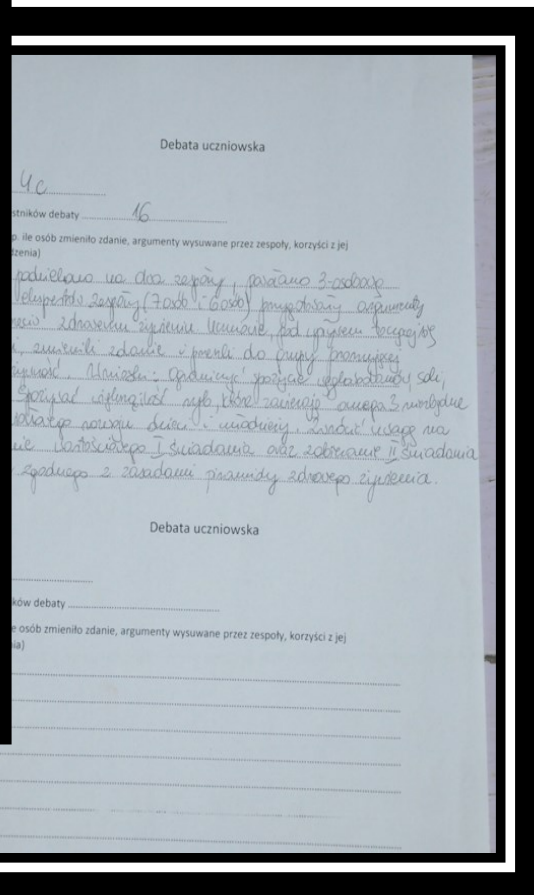 Debata uczniowska
4c
stników debaty 16
p. ile osób zmieniło zdanie, argumenty wysuwane przez zespoły, korzyści z jej
dzenia)
podzielono na dwa zespoły, 3-osobową
ekspertów Zespoły (7 osób i 6 osób) przygotowały argumenty
zdrowemu żywieniu Uczniowie, pod wpływem toczącej się
i, zmienili zdanie i przeszli do grupy promującej
żywność. Wnioski: ograniczyć spożycie soli,
spożywać ryb, które zawierają omega 3 niezbędne
rozwoju dzieci i młodzieży. Zwrócić uwagę na
nie wartościowego I śniadania oraz zabieranie II śniadania
zgodnego z zasadami piramidy zdrowego żywienia.
Debata uczniowska
ków debaty
e osób zmieniło zdanie, argumenty wysuwane przez zespoły, korzyści z jej
ia)